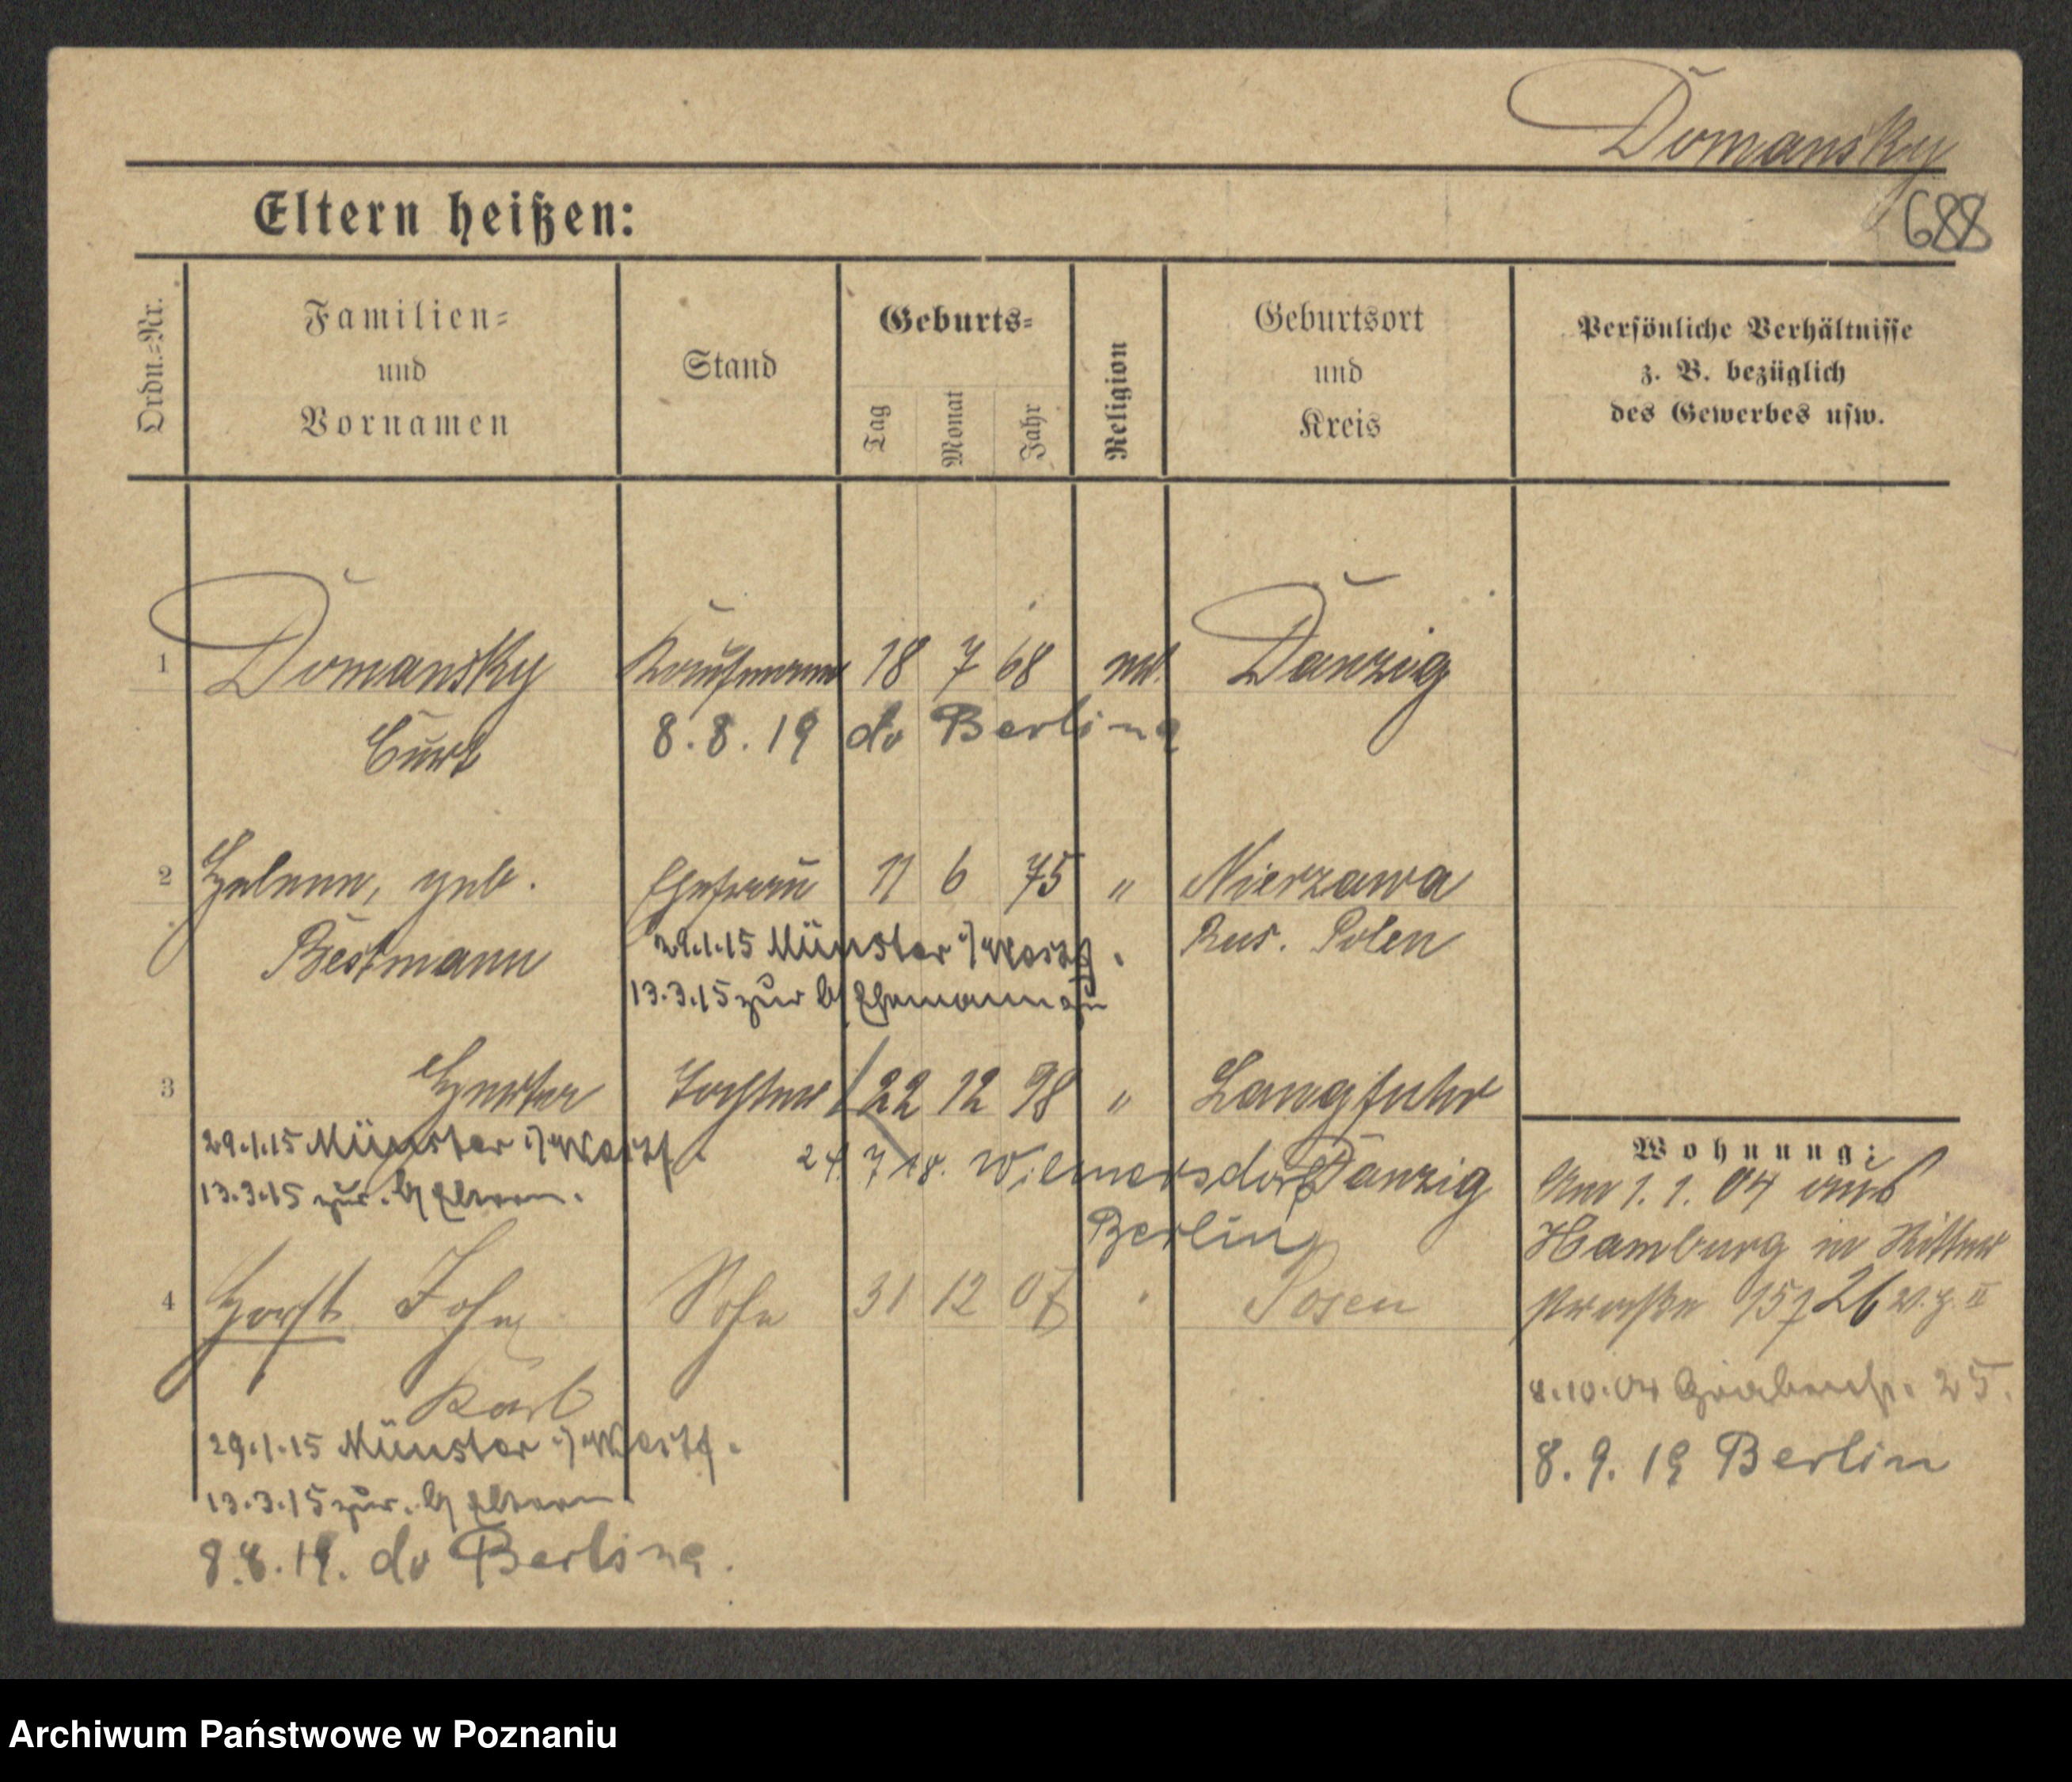 Domansky
688
Eltern heißen:
Ordn.=Nr.
Familien=
und
Vornamen
Stand
Geburts=
Tag
Monat
Jahr
Religion
Geburtsort
und
Kreis
Persönliche Verhältnisse
z. B. bezüglich
des Gewerbes usw.
1 Domansky Kaufmann 18 7 68 Danzig
Curt 8.8.19 do Berlin
2 Helene, geb. Ehefrau 11 6 75 " Nierzawa
Bestmann 29.1.15 Münster i/Westf. Rus. Polen
13.3.15 zur. Ehemann
3 Herta Tochter 22 12 98 " Langfuhr
29.1.15 Münster i/Westf. 24.7.18. Wilmersdorf Danzig
13.3.15 zur. Eltern.
Berlin
4 Horst John Sohn 31 12 07 Posen
Karl
29.1.15 Münster i/Westf.
13.3.15 zur. Eltern
8.8.19. do Berlin
Wohnung:
Am 1.1.04 aus
Hamburg in Ritter
straße 26
8.10.04 25.
8.9.19 Berlin
Archiwum Państwowe w Poznaniu